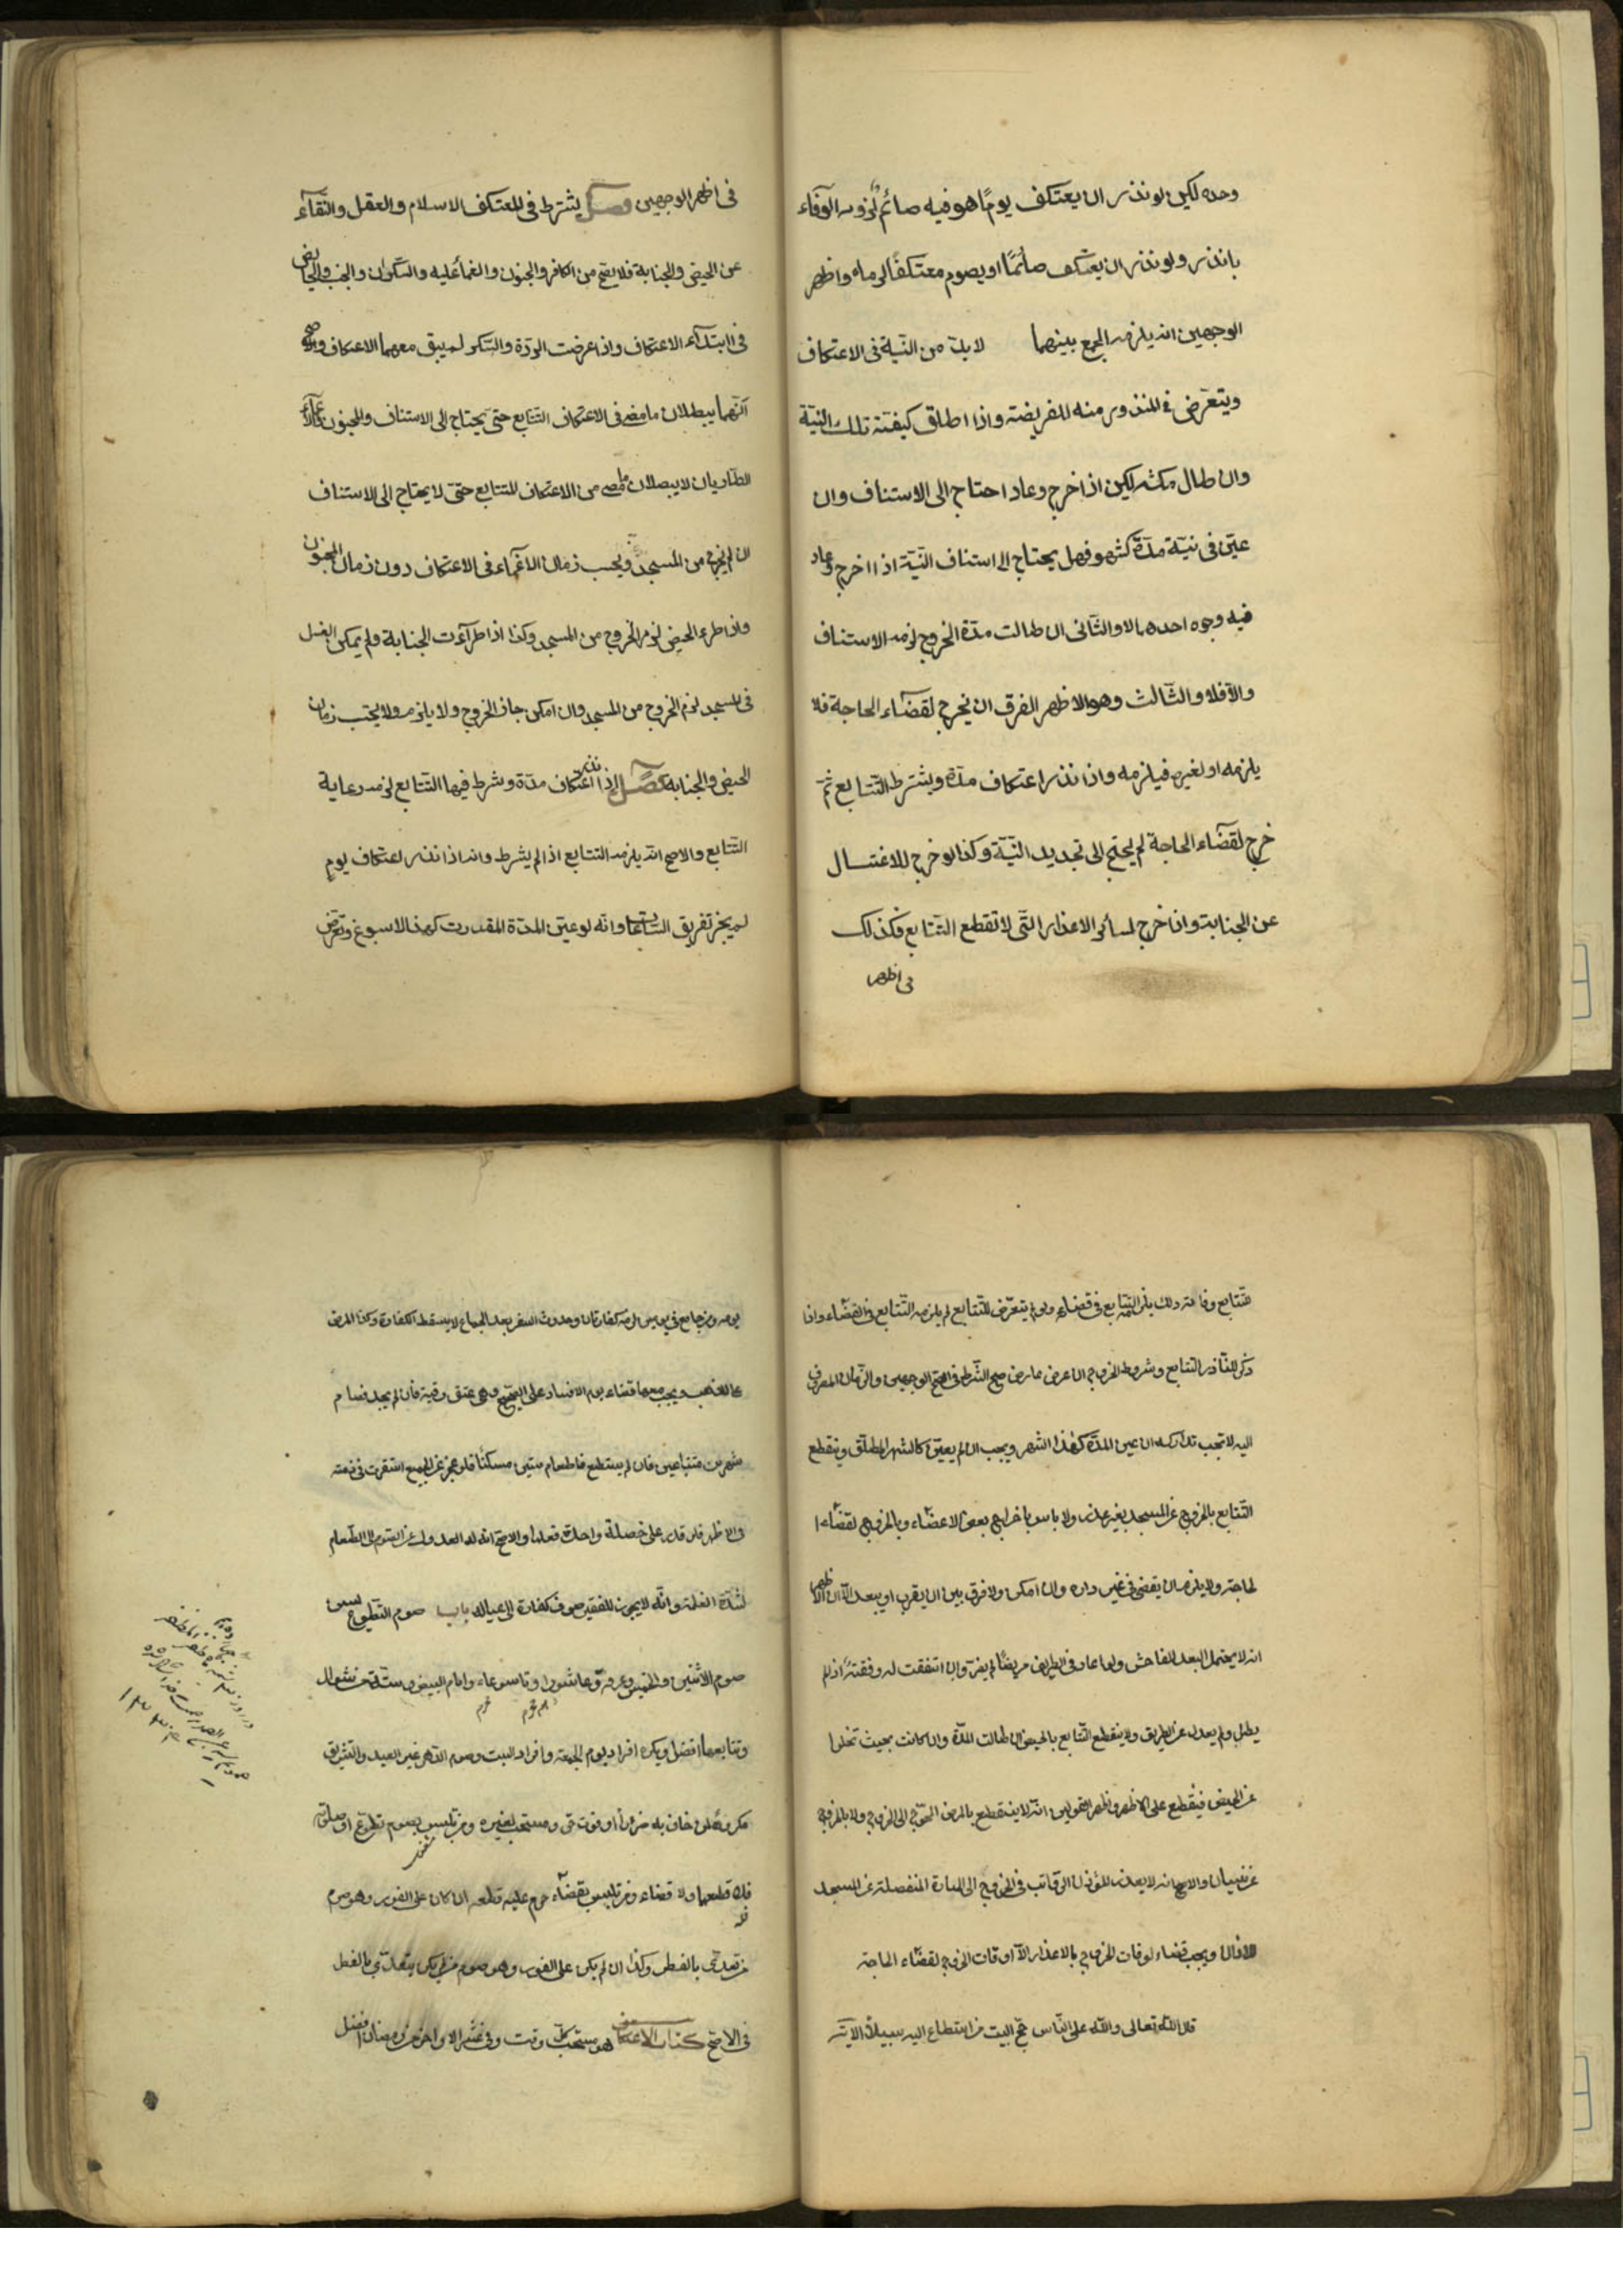 وحده لكن لو نذر ان يعتكف يومًا هو فيه صائم لزومه الوفاء
بالنذر ولو نذر ان يعتكف صائمًا او يصوم معتكفًا لزماه واظهر
الوجهين انه يلزمه الجمع بينهما لا بدّ من النيّة فى الاعتكاف
ويتعرّض فى المنذور منه للفريضة واذا اطلق كيفته تلك النيّة
وان طال مكثه لكن اذا خرج وعاد احتاج الى الاستناف وان
عيّن فى نيّة مدّة كشهر فهل يحتاج الى استناف النّيّة اذا اخرج وعاد
فيه وجوه احدها لا والثّانى ان طالت مدّة الخروج لزمه الاستناف
والّا فلا والثّالث وهو الاظهر الفرق ان يخرج لقضاء الحاجة فلا
يلزمه او لغيره فيلزمه واذا نذر اعتكاف مدّة ويشترط التّتابع ثمّ
خرج لقضاء الحاجة لم يحتج الى تجديد النّيّة وكذا لو خرج للاغتسال
عن الجنابة وان خرج لسائر الاعذار التّى لا تقطع التّتابع فكذلك
فى اظهر
فى اظهر الوجهين فصل يشترط فى المعتكف الاسلام والعقل والنّقآء
عن الحيض والجنابة فلا يصّح من الكافر والمجنون والغمأ عليه والسّكران والجنب والحايض
فى ابتدآء الاعتكاف واذا عرضت الردّة والسّكر لم يبق معهما الاعتكاف والاصح
انّهما يبطلان ما مضى فى الاعتكاف التّتابع حتّى يحتاج الى الاستناف والمجنون والاغمآء
الطّاريان لا يبطلان ما مضى من الاعتكاف للتتابع حتى لا يحتاج الى الاستناف
ان لم يخرج من المسجد ويحسب زمان الاغماء فى الاعتكاف دون زمان الجنون
واذا طرء الحيض لزم الخروج من المسجد وكذا اذا طرآءت الجنابة ولم يمكن الغسل
فى المسجد لزم الخروج من المسجد وان امكن جاز الخروج ولا يلزمه ولا يحتسب زمان
الحيض والجنابة فصل اذا نذر اعتكاف مدّة وشرط فيها التّتابع لزمه رعاية
التّتابع والاصح انّه يلزمه التتابع اذا لم يشرط وانه اذا نذر اعتكاف يومٍ
لم يجز تفريق السّاعات وانّه لو عيّن المدّة المقدرة كهذا الاسبوع وتعرّض
للتتابع وفاتته ذلك يلزمه التّتابع فى قضائه ولو لم يتعرّض للتّتابع لم يلزمه التّتابع فى القضّاء واذا
ذكر النّاذر التّتابع وشروط الخروج ان عرض عارض صح الشّرط فى اصّح الوجهين والزّمان المصروف
اليه لا تجب تداركه ان عين المدّة كهذا الشهر ويجب ان لم يعيّن كالشهر المطلق وينقطع
التّتابع بالخروج عن المسجد بغير عذر ولا باس باخراج بعض الاعضّاء وبالخروج لقضّاء ا
لحاجة ولا يلزمه ان يقضى فى غير داره وان امكن ولا فرق بين ان يقرب او يبعد الّا ان الاظهر
انه لا يحتمل البعد الفاحش ولو عاد فى الطريق مريضًا لم يضر وان اتفقت له وقفته اذا لم
يطل ولم يعدل عن الطريق ولا ينقطع التّتابع بالحيض ان طالت المدّة وان كانت بحيث تخلوا
عن الحيض فينقطع على الاظهر واظهر القولين انّه لا ينقطع بالمرض المحوّج الى الخروج ولا بالخروج
عن نسيان والاصح انه لا يعذر المؤذن الرّاتب فى الخروج الى المنارة المنفصلة عن المسجد
للاذان ويجب قضاء اوقات الخروج بالاعذار الّا اوقات الخروج لقضّاء الحاجة
قال اللّه تعالى وللّه على النّاس حجّ البيت من استطاع اليه سبيلًا الآية
يومه ومن جامع فى يومين لزمه كفارتان وحدوث السفر بعد الجماع لا يسقط الكفارة وكذا المرض
على المذهب ويجب معها قضاء يوم الافساد على الصّحيح وهى عتق رقبة فان لم يجد فصام
شهرين متتابعين فان لم يستطع فاطعام ستين مسكنًا فلو عجز عن الجميع استقرت فى ذمته
فى الاظهر فان قدر على خصلة واحدة فعلها والاصّح انه له العدول عن الصّوم الى الطّعام
لشدّة الغلمة وانّه لا يجوز للفقير صرف كفارة الى عياله باب صوم التّطوع يسن
صوم الاثنين والخميس وعرفة وعاشورا وتاسوعاء وايام البيض وستّة من شوال
وتتابعها افضل ويكره افراد يوم الجمعة وافراد السبت وصوم الدّهر غير العيد والتّشريق
مكروه لمن خاف به ضررًا او فوت حق ومستحب لغيره ومن تلبس بصوم تطوّع او صلوته
فله قطعهما ولا قضاء ومن تلبس بقضّاء حرم عليه قطعه ان كان على الفور وهو صوم
من تعدّى بالفطر وكذا ان لم يكن على الفور وهو صوم من لم يكن يتعدّى بالفطر
فى الاصّح كتاب الاعتكاف هو مستحبّ كلّ وقت وفى عشر الاواخر من رمضان افضل